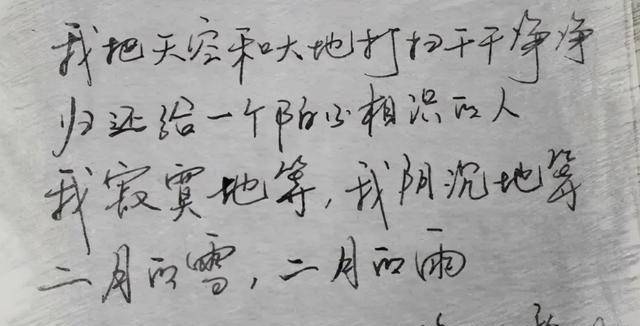 我把天空和大地打扫干干净净
归还给一个陌不相识的人
我寂寞地等，我阴沉地等
二月的雪，二月的雨